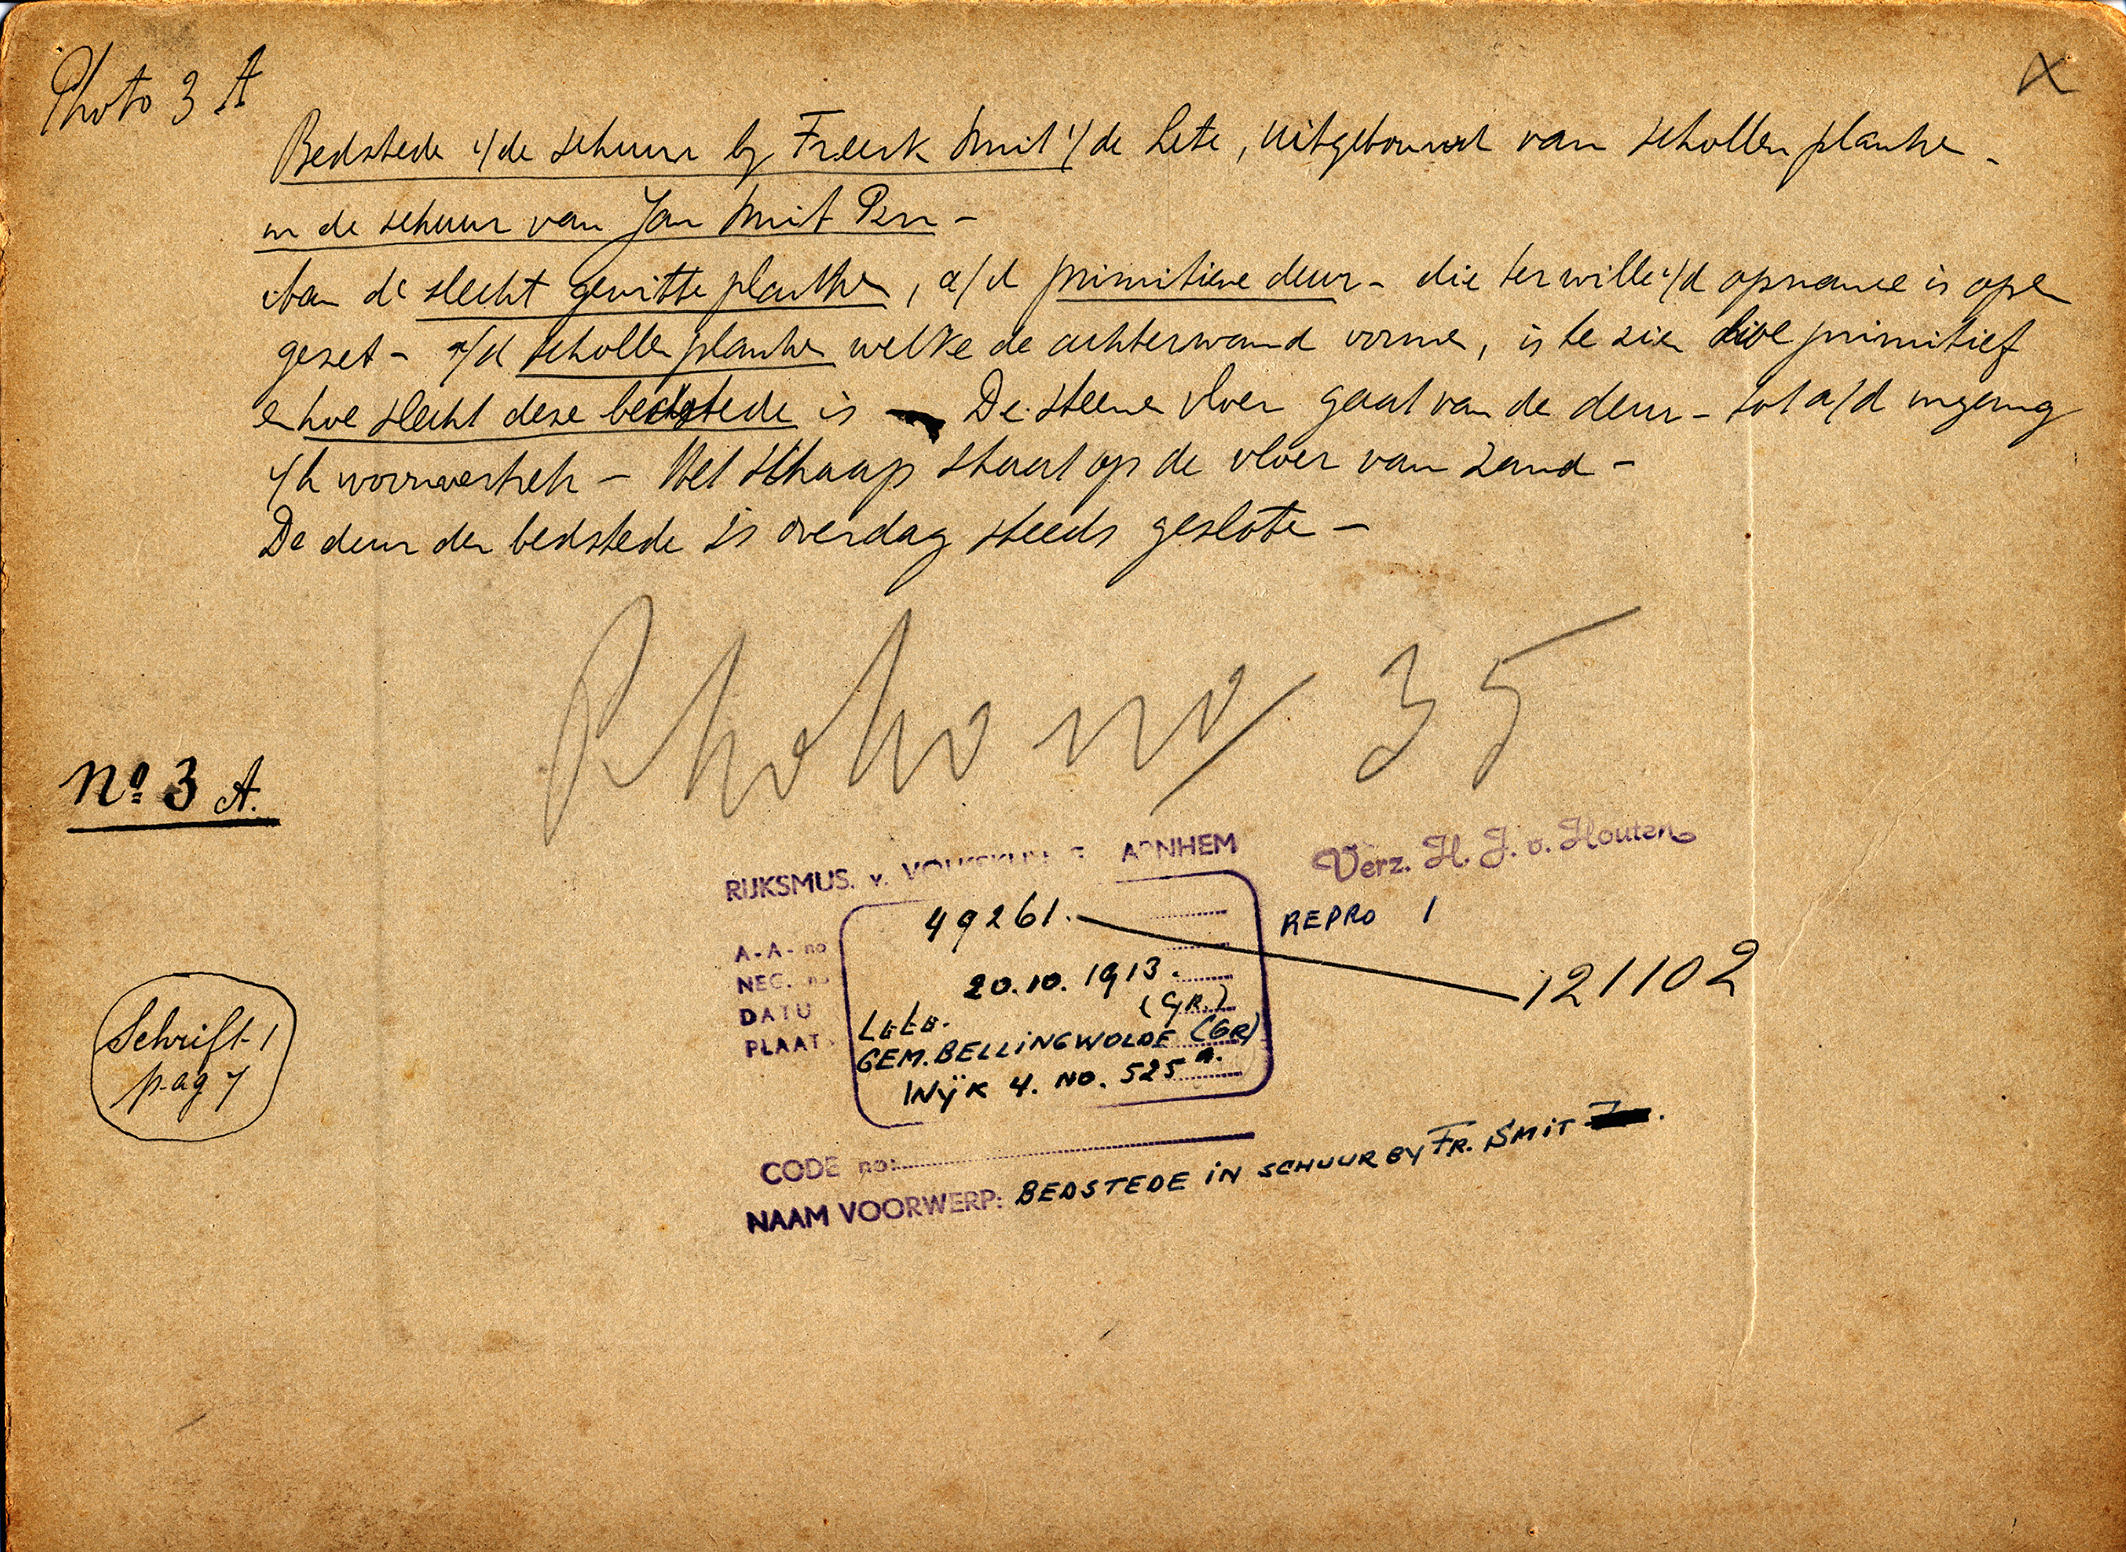 Photo 3 A
X
Bedstede i/de schuur by Freerk Smit i/de Lete, uitgebouwd van schollen planke -
in de schuur van Jan Smit Pzn -
Aan de slecht gewitte planke, a/d primitieve deur - die ter wille v/d opname is open
gezet - a/d schollen planke welke de achterwand vorme, is te zien hoe primitief
en hoe slecht deze bedstede is - De steene vloer gaat van de deur - tot a/d ingang
v/h woonvertrek - Het schaap staat op de vloer van zand -
De deur der bedstede is overdag steeds geslote -
Photo no 35
No 3 A.
RIJKSMUS. v. VOLKSKUNDE ARNHEM
Verz. H. J. v. Houten
49261.
REPRO 1
A-A- no
121102
NEG. no
20.10.1913.
DATU
(GR.)
PLAAT
LETE.
GEM. BELLINGWOLDE (GR)
WIJK 4. NO. 525 a.
Schrift 1
pag 7
CODE no:
NAAM VOORWERP: BEDSTEDE IN SCHUUR BY FR. SMIT